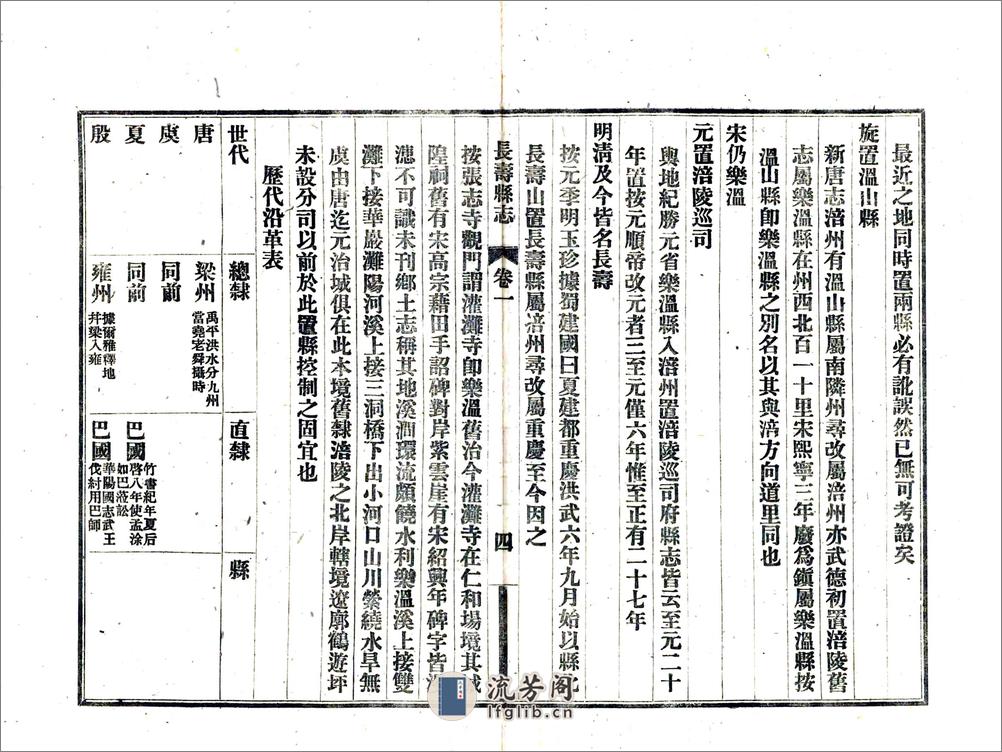 最近之地同時置兩縣必有訛誤然已無可考證矣
旋置溫山縣
新唐志涪州有溫山縣屬南隣州尋改屬涪州亦武德初置涪陵舊
志屬樂溫縣在州西北百一十里宋熙寧三年廢爲鎭屬樂溫縣按
溫山縣卽樂溫縣之別名以其與涪方向道里同也
宋仍樂溫
元置涪陵巡司
輿地紀勝元省樂溫縣入涪州置涪陵巡司府縣志皆云至元二十
年置按元順帝改元者三至元僅六年惟至正有二十七年
明淸及今皆名長壽
按元季明玉珍據蜀建國曰夏建都重慶洪武六年九月始以縣北
長壽山置長壽縣屬涪州尋改屬重慶至今因之
長壽縣志 卷一 四
按張志寺觀門謂灌灘寺卽樂溫舊治今灌灘寺在仁和場境其城
隍祠舊有宋高宗藉田手詔碑對岸紫雲崖有宋紹興年碑字皆
漶不可識未刊鄉土志稱其地溪澗環流頗饒水利樂溫溪上接雙
灘下接華巖灘陽河溪上接三洞橋下出小河口山川縈繞水旱無
虞由唐迄元治城俱在此本境舊隸涪陵之北岸轄境遼廓鶴遊坪
未設分司以前於此置縣控制之固宜也
歷代沿革表
世代 總隸 直隸 縣
唐 梁州 禹平洪水分九州
當堯老舜攝時
虞 同前
夏 同前 巴國 竹書紀年夏后
啓八年使孟涂
如巴涖訟
殷 雍州 據爾雅釋地
幷梁入雍
巴國 華陽國志武王
伐紂用巴師
流芳阁
lfglib.cn